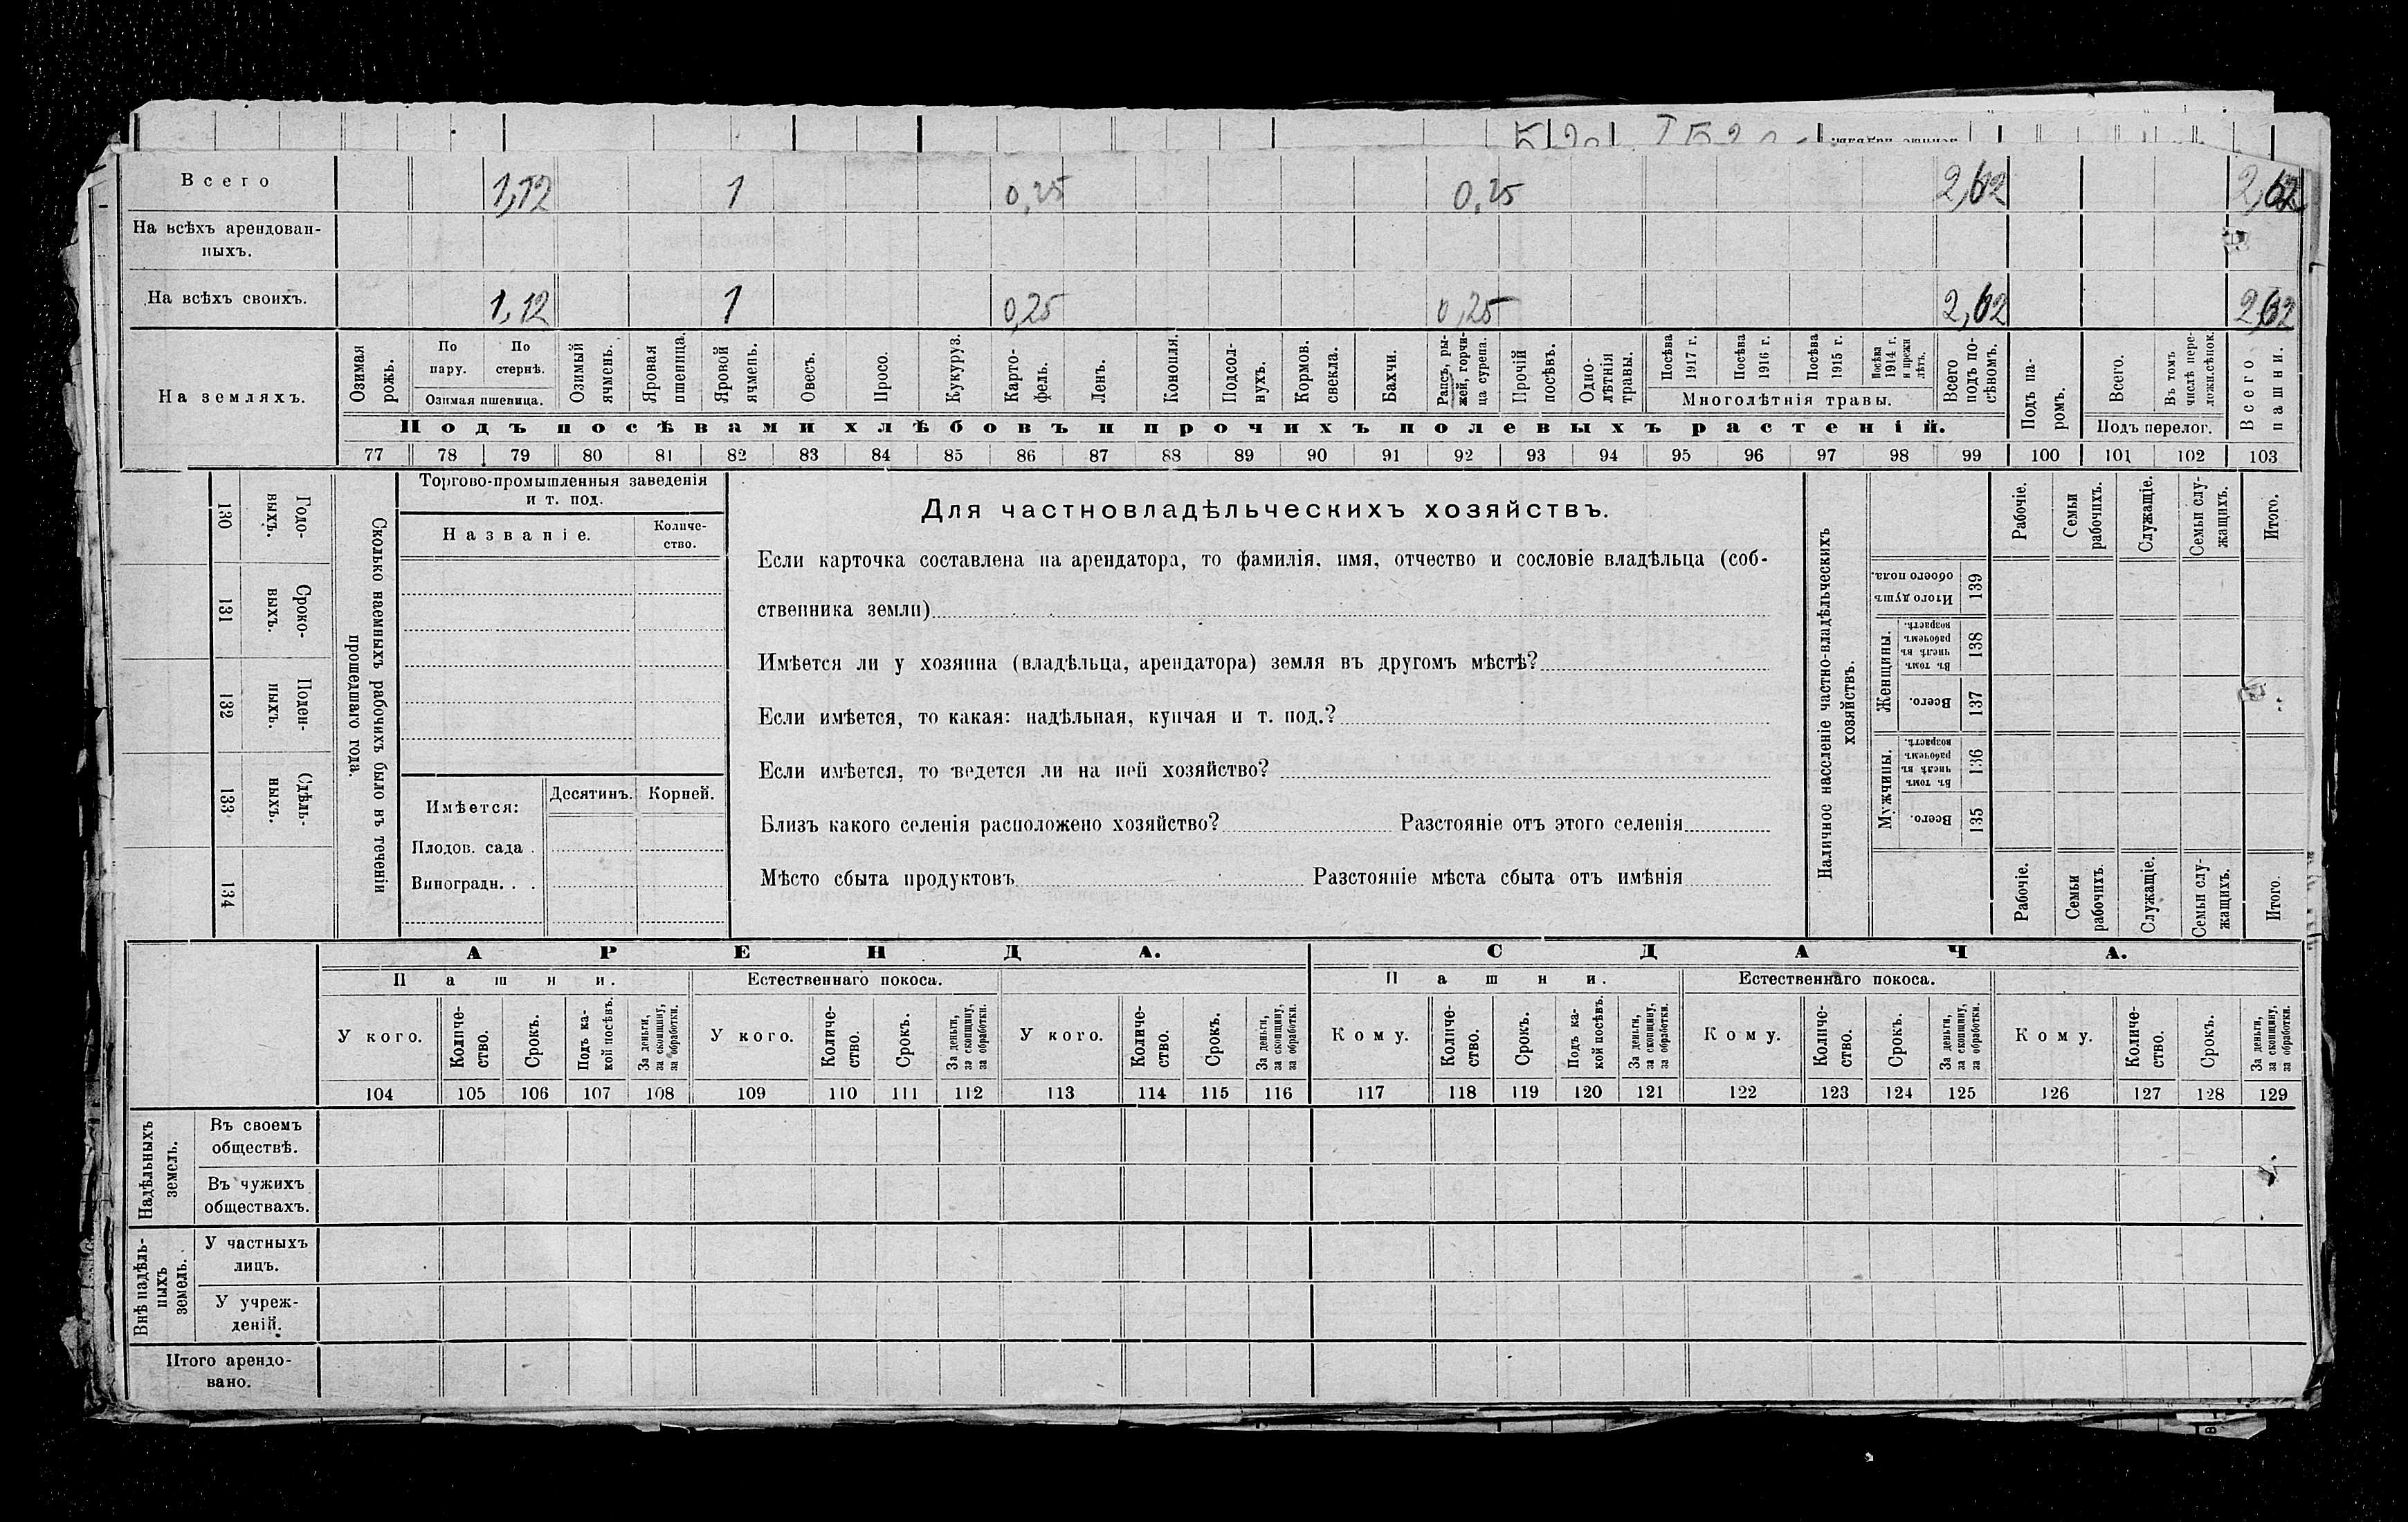 Всего 1,12 1 0,25 0,25 2,62 2,62
На всѣхъ арендован-
ныхъ.
На всѣхъ своихъ. 1,12 1 0,25 0,25 2,62 2,62
На земляхъ.
Озимая рожь.
По пару.
По стернѣ.
Озимая пшеница.
Озимый ячмень.
Яровая пшеница.
Яровой ячмень.
Овесъ.
Просо.
Кукуруз.
Карто-
фель.
Ленъ.
Конопля.
Подсол-
нухъ.
Кормов. свекла.
Бахчи.
Рапсъ, ры-
жей, горчи-
ца сурепа.
Прочій посѣвъ.
Одно-
лѣтнія травы.
Посѣва 1917 г.
Посѣва 1916 г.
Посѣва 1915 г.
Посѣва 1914 г. и прежн лѣтъ.
Многолѣтнія травы.
Всего подъ по-
сѣвомъ.
Подъ па-
ромъ.
Всего.
Въ томъ числѣ пере-
ложн.сѣнок.
Подъ перелог.
Всего пашни.
Подъ посѣвами хлѣбовъ и прочихъ полевыхъ растеній.
77 78 79 80 81 82 83 84 85 86 87 88 89 90 91 92 93 94 95 96 97 98 99 100 101 102 103
130 Годо-
выхъ.
131 Сроко-
выхъ.
132 Поден-
ныхъ.
133 Сдѣль-
ныхъ.
134
Сколько наемныхъ рабочихъ было въ теченіи
прошедшаго года.
Торгово-промышленныя заведенія
и т. под.
Названіе.
Количе-
ство.
Имѣется:
Десятинъ. Корней.
Плодов. сада .
Виноградн. . .
Для частновладѣльческихъ хозяйствъ.
Если карточка составлена на арендатора, то фамилія, имя, отчество и сословіе владѣльца (соб-
ственника земли)
Имѣется ли у хозяина (владѣльца, арендатора) земля въ другомъ мѣстѣ?
Если имѣется, то какая: надѣльная, купчая и т. под.?
Если имѣется, то ведется ли на ней хозяйство?
Близъ какого селенія расположено хозяйство? Разстояніе отъ этого селенія
Мѣсто сбыта продуктовъ Разстояніе мѣста сбыта отъ имѣнія
Наличное населеніе частно-владѣльческихъ
хозяйствъ.
Рабочіе.
Семьи рабочихъ.
Служащіе.
Семьи слу-
жащихъ.
Итого.
Итого душъ обоего пола. 139
Женщины.
Въ томъ числѣ въ рабочемъ возрастѣ. 138
Всего. 137
Мужчины.
Въ томъ числѣ въ рабочемъ возрастѣ. 136
Всего. 135
Рабочіе.
Семьи рабочихъ.
Служащіе.
Семьи слу-
жащихъ.
Итого.
АРЕНДА. СДАЧА.
Пашни. Естественнаго покоса. Пашни. Естественнаго покоса.
У кого.
Количе-
ство.
Срокъ.
Подъ ка-
кой посѣвъ.
За деньги, за скопщину, за обработки.
У кого.
Количе-
ство.
Срокъ.
За деньги, за скопщину, за обработки.
У кого.
Количе-
ство.
Срокъ.
За деньги, за скопщину, за обработки.
Кому.
Количе-
ство.
Срокъ.
Подъ ка-
кой посѣвъ.
За деньги, за скопщину, за обработки.
Кому.
Количе-
ство.
Срокъ.
За деньги, за скопщину, за обработки.
Кому.
Количе-
ство.
Срокъ.
За деньги, за скопщину, за обработки.
104 105 106 107 108 109 110 111 112 113 114 115 116 117 118 119 120 121 122 123 124 125 126 127 128 129
Надѣльныхъ
земель.
Въ своемъ
обществѣ.
Въ чужихъ
обществахъ.
Внѣ надѣль-
ныхъ
земель.
У частныхъ
лицъ.
У учреж-
деній.
Итого арендо-
вано.